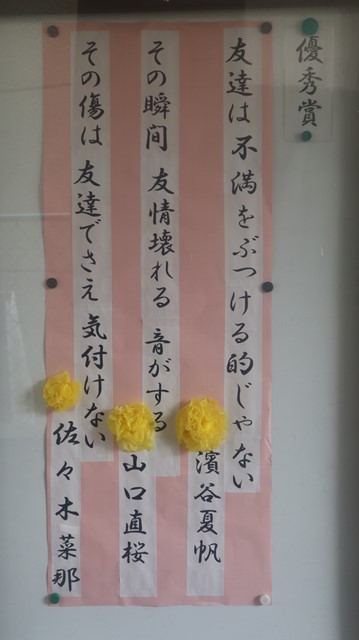 優秀賞
友達は 不満をぶつける的じゃない
濱谷夏帆
その瞬間 友情壊れる 音がする
山口直桜
その傷は 友達でさえ 気付けない
佐々木菜那